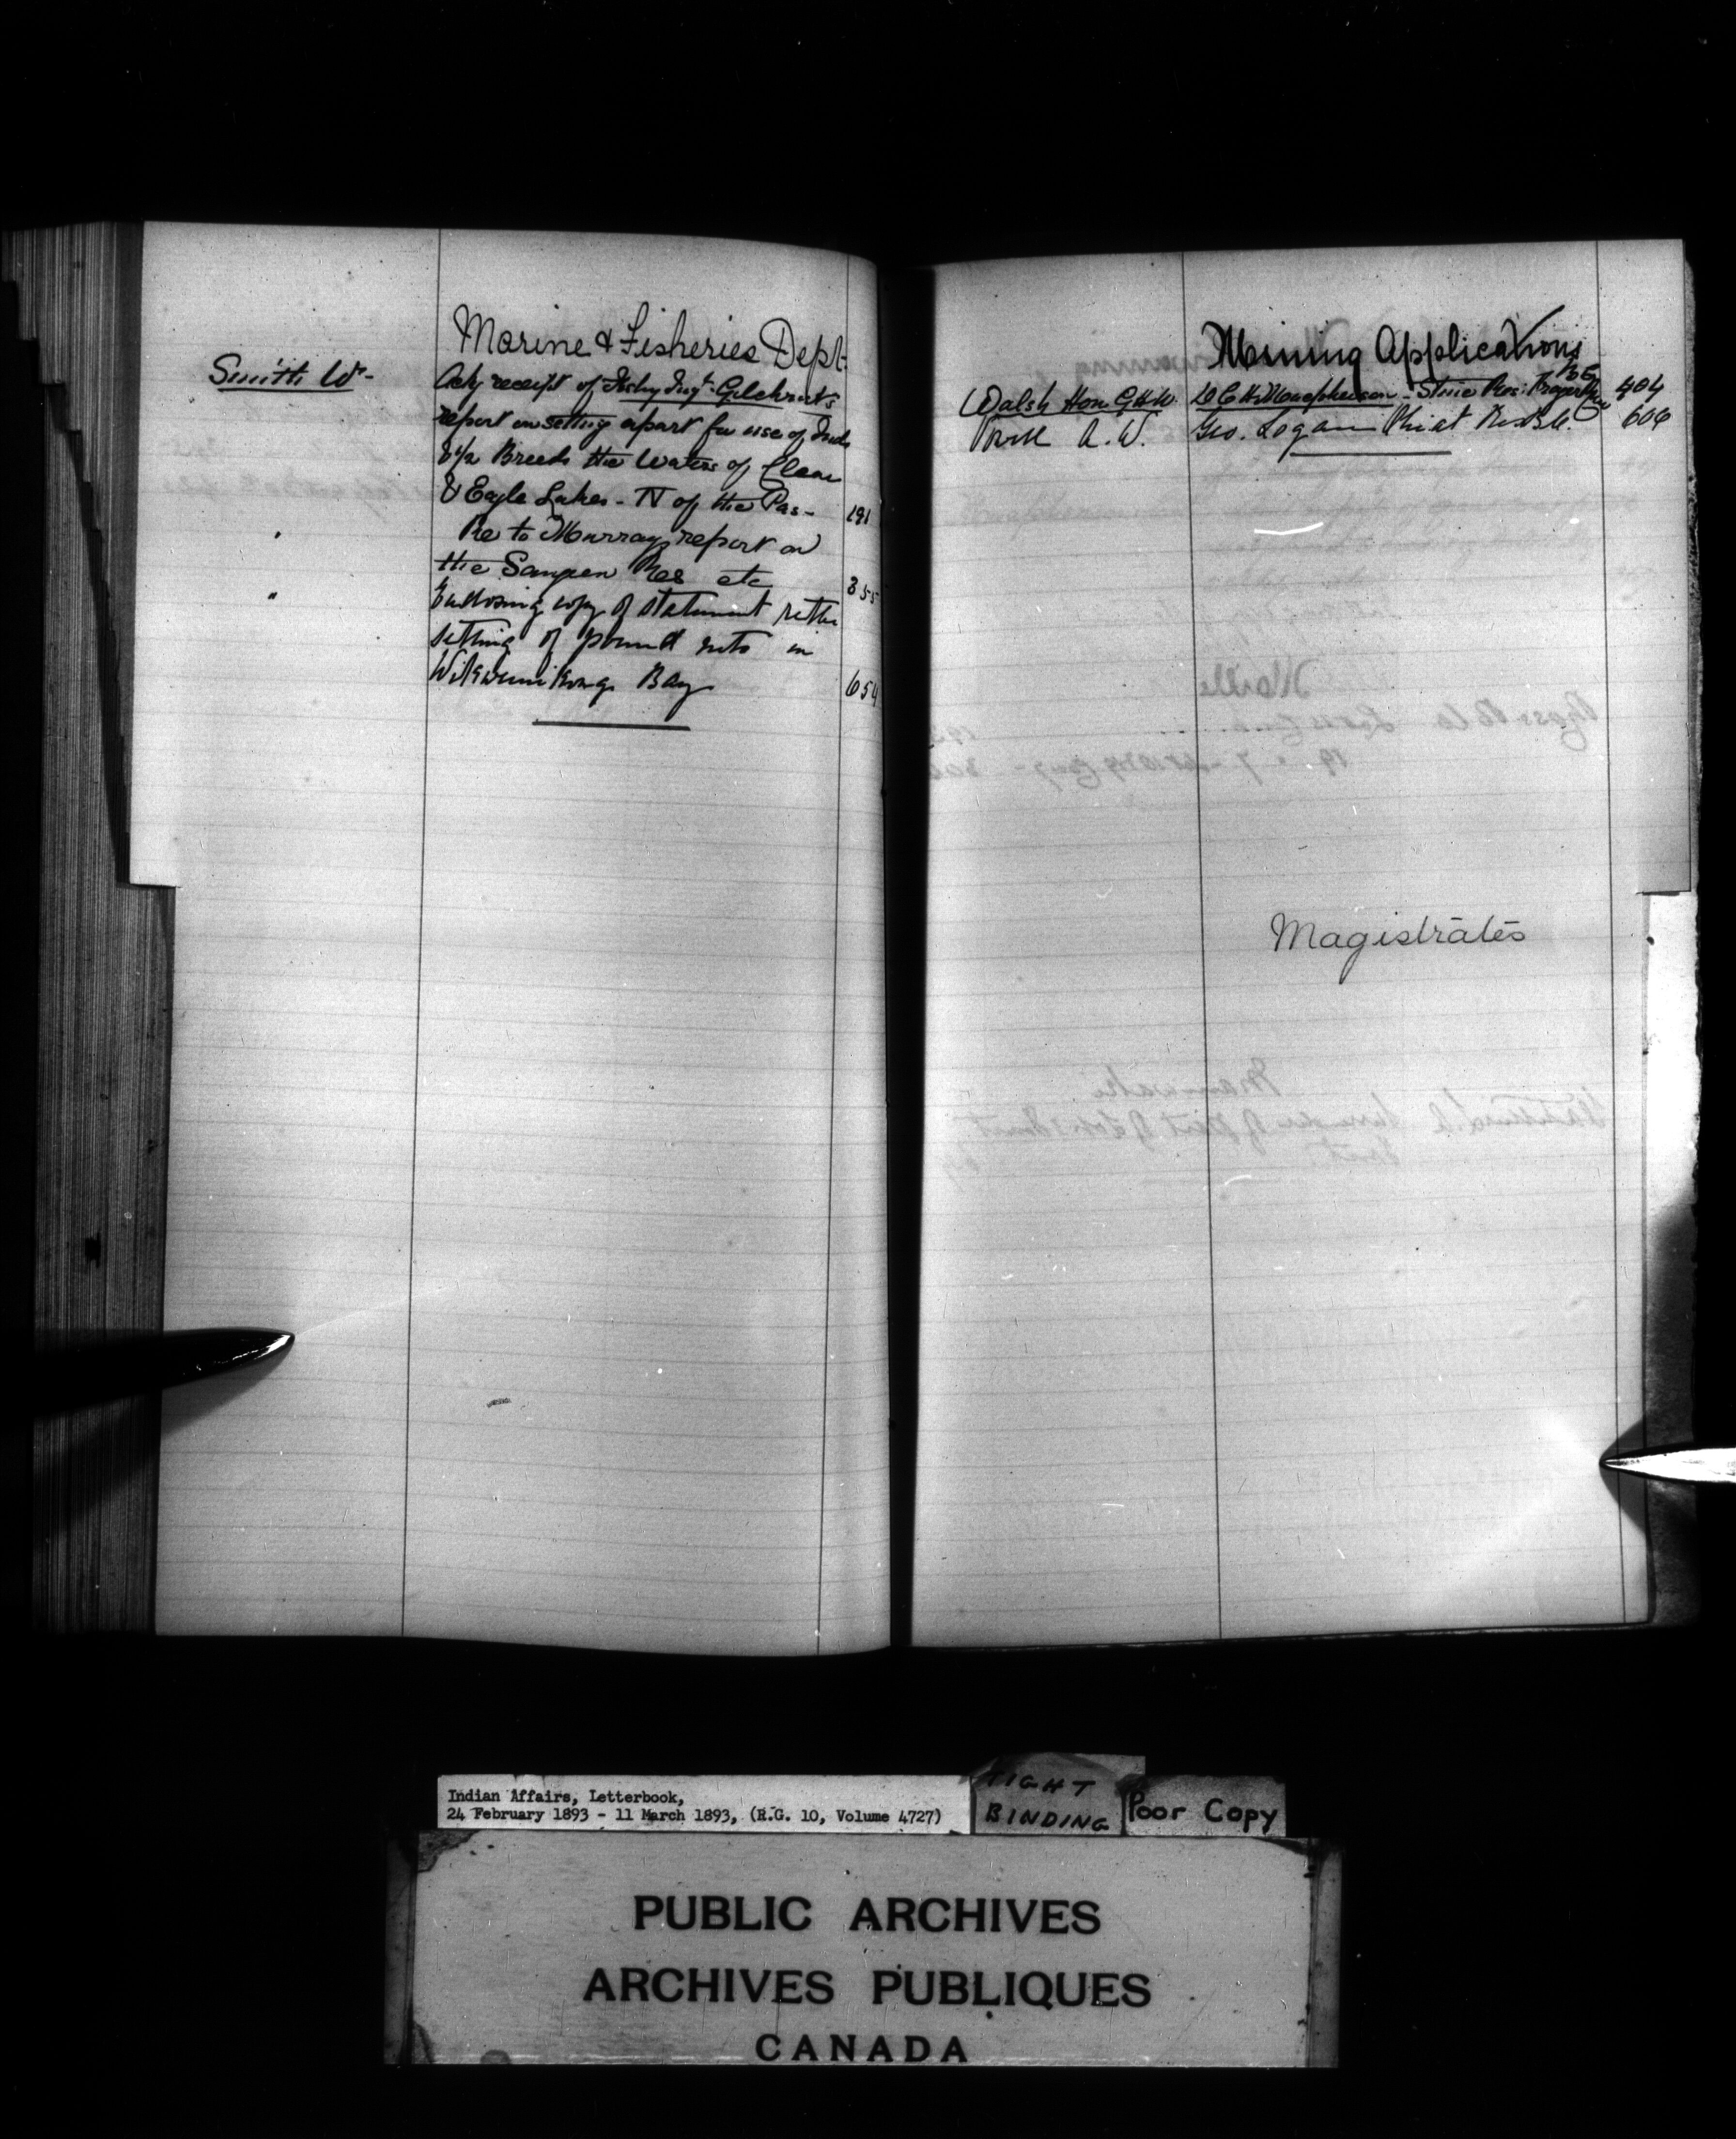 Marine & Fisheries Dept.
Smith Wm
Ackg receipt of Fishy Insp. Gilchrist's
report on setting apart for use of Inds
& 1/2 Breeds the Waters of Clear
& Eagle Lakes - N of the Pas - 191
" Re to Murray report on
the Saugeen Res etc 355
" Enclosing copy of statement re the
setting of pound nets in
Wikwemikong Bay 654
Mining Applications
Walsh Hon - Res: 404
A. W. Geo. Logan 606
Magistrates
Indian Affairs, Letterbook,
24 February 1893 - 11 March 1893, (R.G. 10, Volume 4727)
TIGHT
BINDING
Poor Copy
PUBLIC ARCHIVES
ARCHIVES PUBLIQUES
CANADA